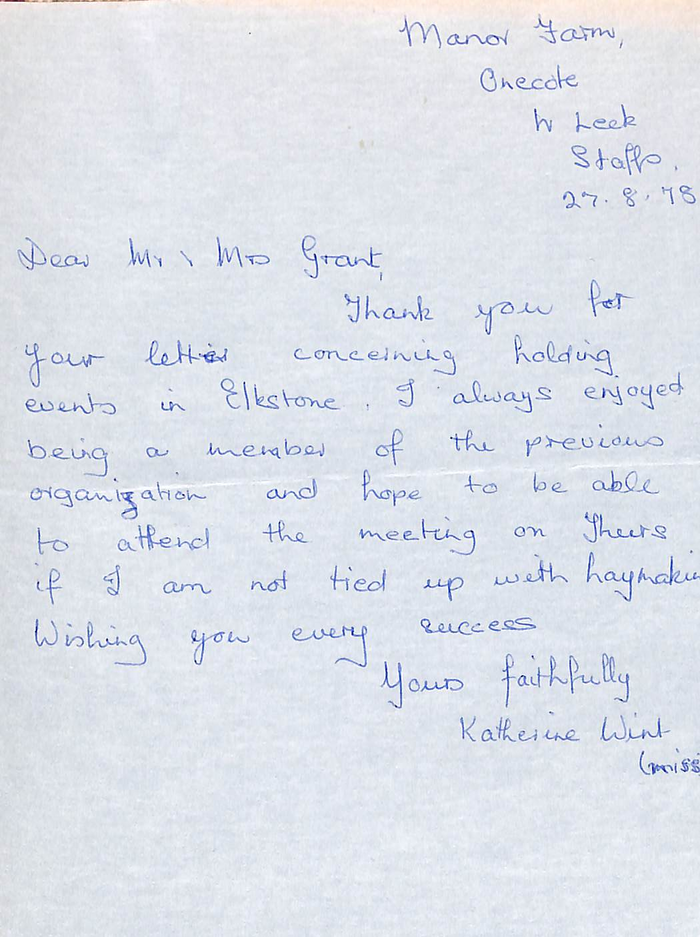 Manor Farm,
Onecote
Nr Leek
Staffs.
27.8.78
Dear Mr & Mrs Grant,
Thank you for
your letter concerning holding
events in Elkstone. I always enjoyed
being a member of the previous
organization and hope to be able
to attend the meeting on Thurs
if I am not tied up with haymakin
Wishing you every success
Yours faithfully
Katherine Wint
(miss